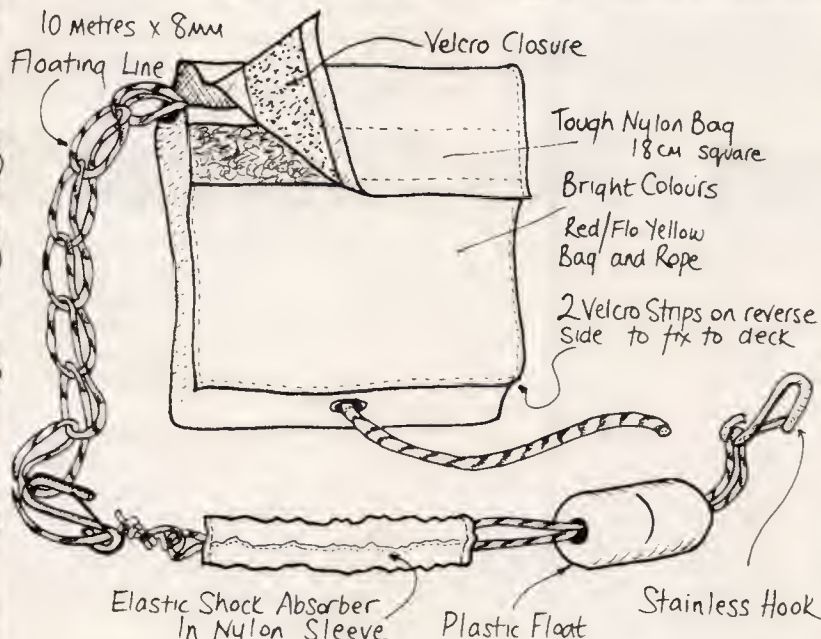 10 Metres x 8mm
Floating Line
Velcro Closure
Tough Nylon Bag
18cm square
Bright Colours
Red/Flo Yellow
Bag and Rope
2 Velcro Strips on reverse
side to fix to deck
Elastic Shock Absorber
In Nylon Sleeve
Plastic Float
Stainless Hook